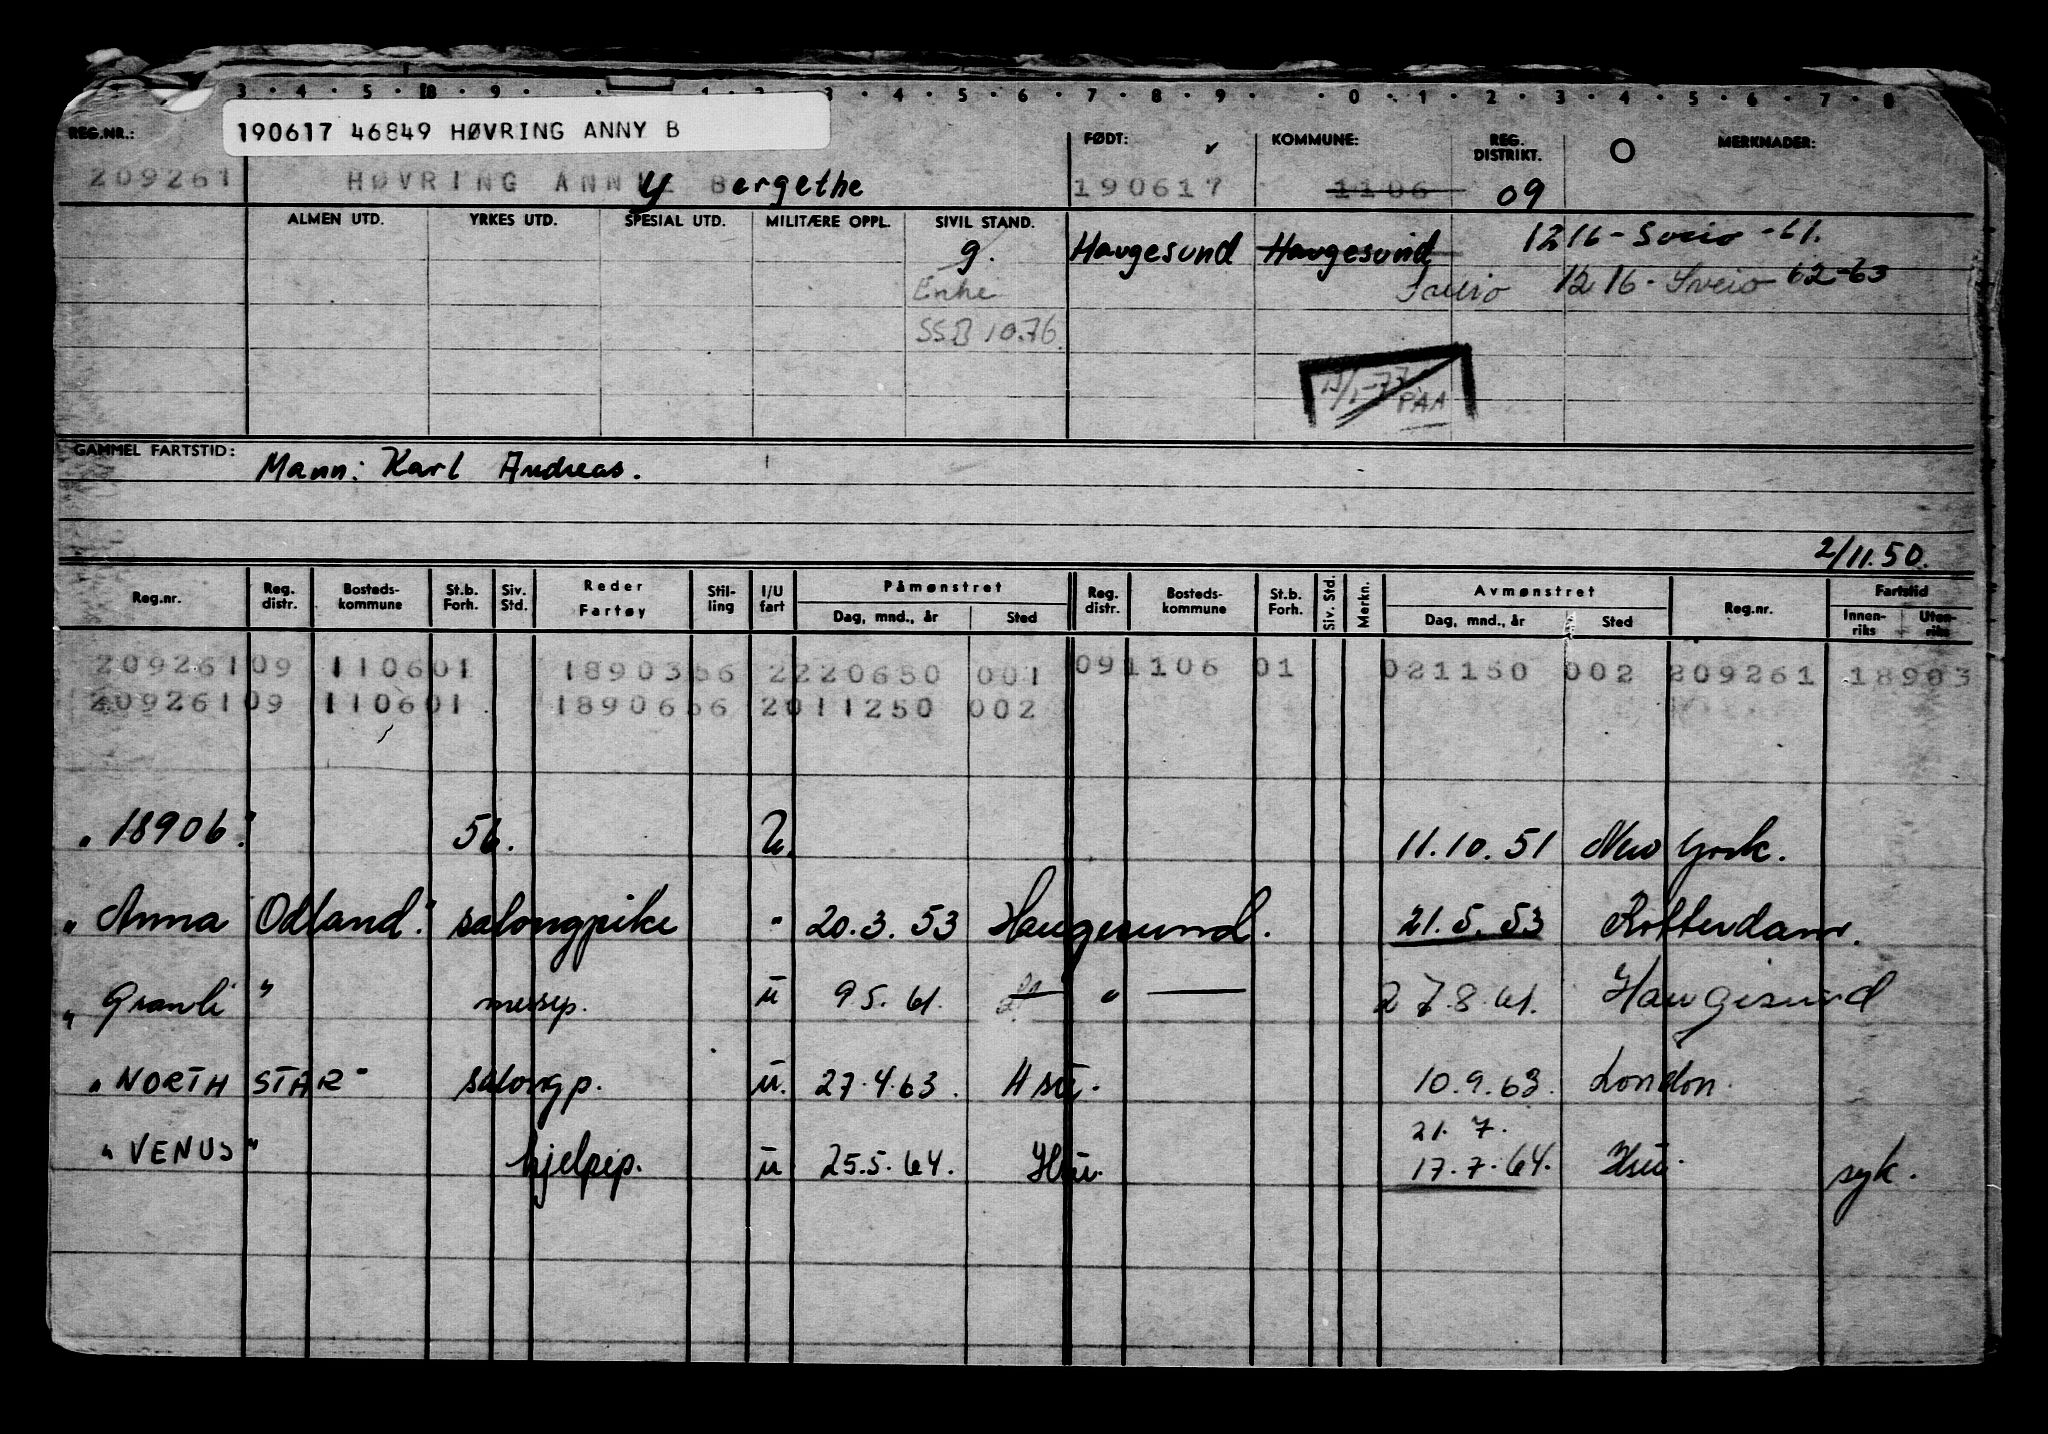 3 · 4 · 5 · 8 · 9 · 1 · 2 · 3 · 4 · 5 · 6 · 7 · 8 · 9 · 0 · 1 · 2 · 3 · 4 · 5 · 6 · 7 · 8
190617 46849 HØVRING ANNY B
REG.NR.: FØDT: KOMMUNE: REG. DISTRIKT. O MERKNADER:
209261 HØVRING ANNY Bergethe 190617 1106 09
ALMEN UTD. YRKES UTD. SPESIAL UTD. MILITÆRE OPPL. SIVIL STAND.
g. Haugesund Haugesund 1216 - Sveio - 61.
Enke Sveio 1216 - Sveio 62-63
SSB 10.76
PAA
GAMMEL FARTSTID: Mann: Karl Andreas.
2/11.50.
Reg.nr. Reg. distr. Bosteds-kommune St.b. Forh. Siv. Std. Reder Fartøy Stil-ling I/U fart Påmønstret Reg. distr. Bosteds-kommune St.b. Forh. Siv. Std. Merkn. Avmønstret Reg.nr. Fartstid
Dag, mnd., år Sted Dag, mnd., år Sted Innen-riks Uten-riks
209261 09 1106 01 18903 56 2 220650 001 09 1106 01 021150 002 209261 18903
209261 09 1106 01 18906 56 2 011250 002
"18906" 56. U. 11.10.51 New York.
"Anna Odland" salongpike " 20.3.53 Haugesund. 21.5.53 Rotterdam.
"Granli" messp. u 9 5. 61. — " — 27.8.61. Haugesund
"NORTH STAR" salongp. u. 27.4.63. Hsu. 10.9.63. London.
21.7.
"VENUS" hjelpep. u 25.5.64. Hsu. 17.7.64. Hsu. syk.